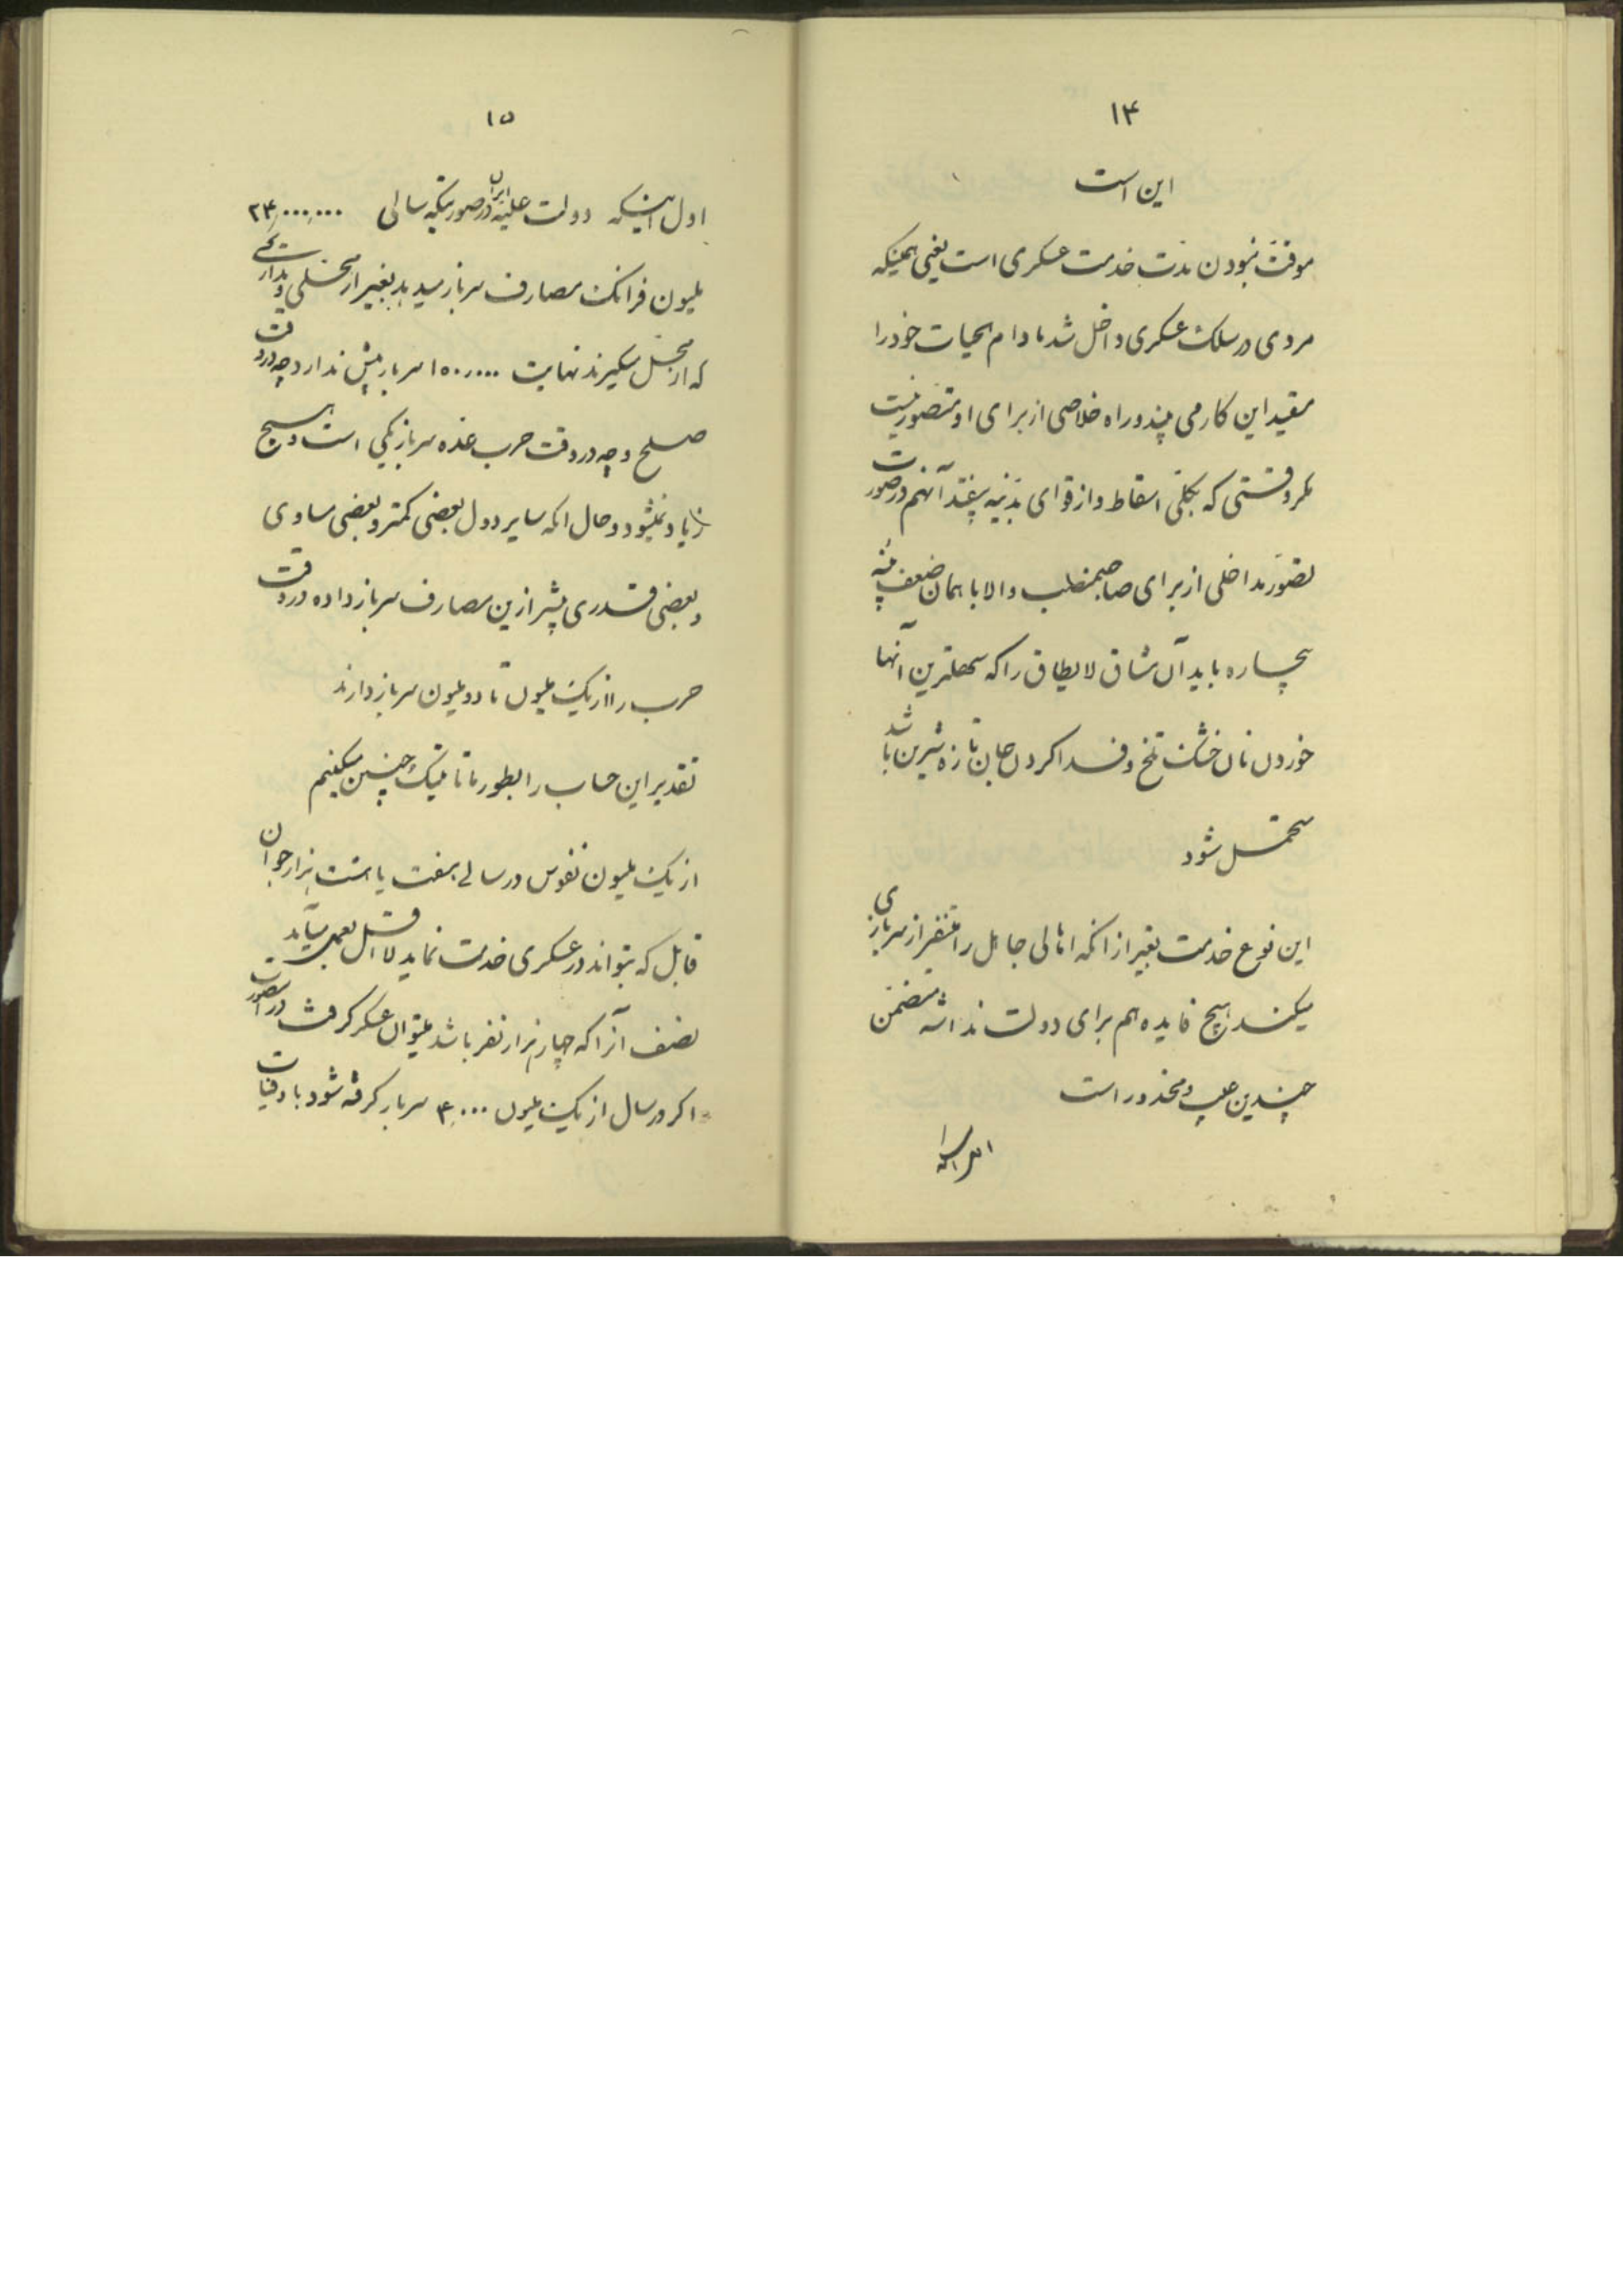 ۱۴
این است
موقت نبودن مدت خدمت عسکری است یعنی همینکه
مردی در سلک عسکری داخل شد مادام الحیات خود را
مقید این کار می بیند و راه خلاصی از برای او متصور نیست
مکر وقتی که بکلی اسقاط و از قوای بدنیه بیفتد آنهم در صورت
تصور مداخلی از برای صاحبمنصب والا با همان ضعف بنیه
بیچاره باید آن مشاق لایطاق را که سهلترین آنها
خوردن نان خشک تلخ و فدا کردن جان تازه شیرین باشد
متحمل شود
این نوع خدمت بغیر از انکه اهالی جاهل را متنفر از سربازی
میکند هیچ فایده هم برای دولت نداشته متضمن
چندین عیب و محذور است
۱۵
اول اینکه دولت علیه ایران در صورتیکه سالی ۲۴,۰۰۰,۰۰۰
ملیون فرانک مصارف سرباز میدهد بغیر از محلی و
که از محل میکیرند نهایت ۱۵۰,۰۰۰ سرباز بیش ندارد چه در وقت
صلح و چه در وقت حرب عده سرباز یکی است و هیچ
زیاد نمیشود و حال انکه سایر دول بعضی کمتر و بعضی مساوی
و بعضی قدری بیشتر ازین مصارف سرباز داده در وقت
حرب را از یک ملیون تا دو ملیون سرباز دارند
تقدیر این حساب را بطور تاتیک چنین میکنیم
از یک ملیون نفوس در سالی هفت یا هشت هزار جوان
قابل که بتواند در عسکری خدمت نماید لااقل بعمل میآید
نصف آنرا که چهار هزار نفر باشد میتوان عسکر کرفت در اینصورت
اکر در سال از یک ملیون ۴,۰۰۰ سرباز کرفته شود با وفیات